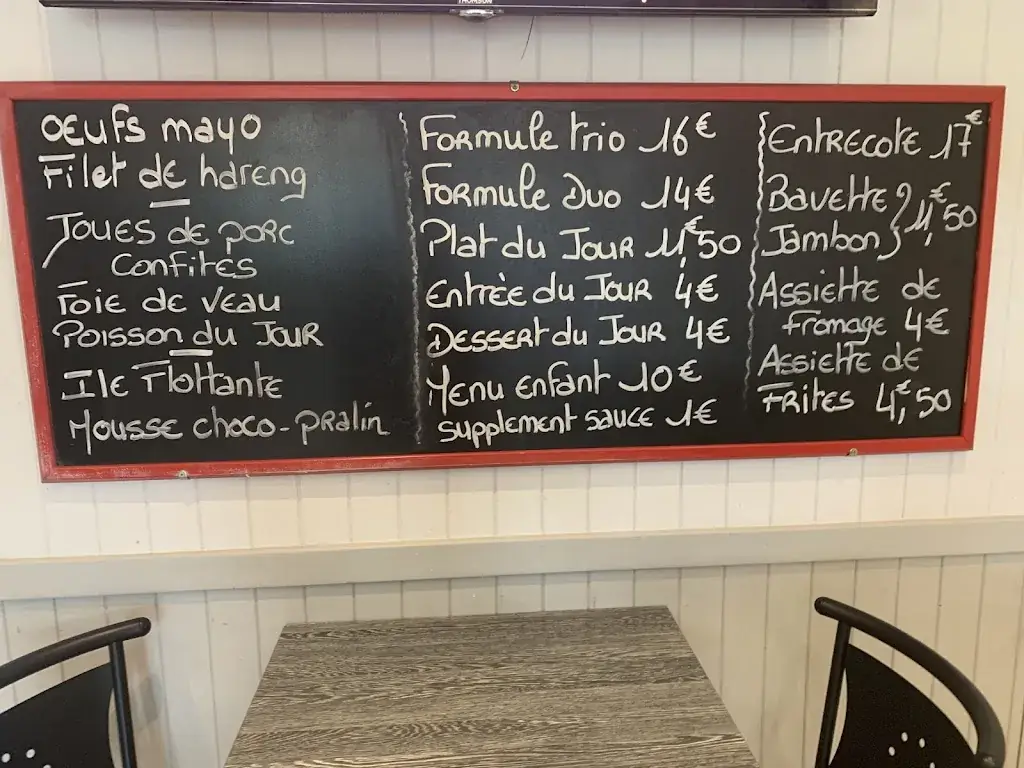 THOMSON
OEUFS mayo
Filet de hareng
Joues de porc
confites
Foie de veau
Poisson du Jour
Ile Flottante
Mousse choco-pralin
Formule trio 16€
Formule Duo 14€
Plat du Jour 11,€50
Entrée du Jour 4€
Dessert du Jour 4€
Menu enfant 10€
supplément sauce 1€
Entrecote 17€
Bavette } 11,€50
Jambon
Assiette de
fromage 4€
Assiette de
Frites 4,€50